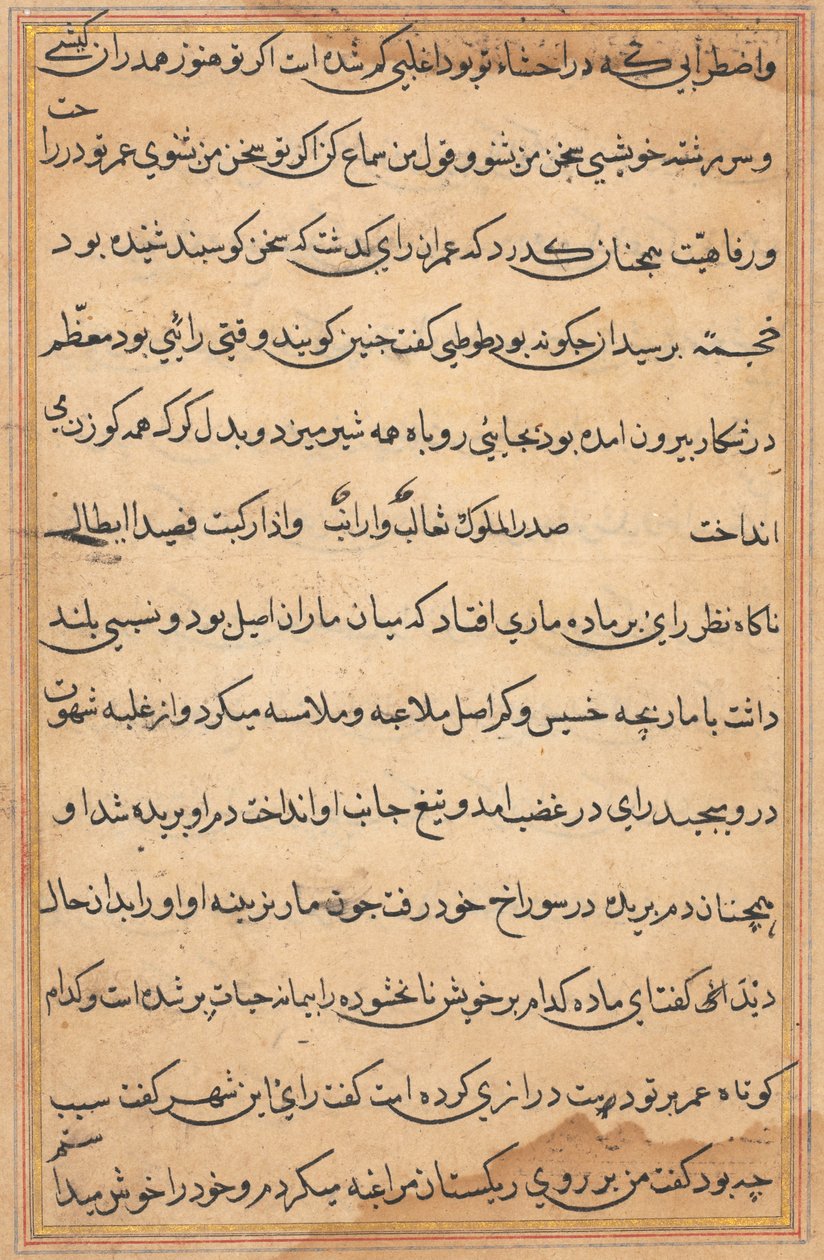 واضطرابي كه در احشاء تو بود اغلبي كم شده است اكر تو هنوز همدران كيشي
و سر رشته خويشي سخن من بشنو و قول من سماع كن اكر تو سخن من بشنوي عمر تو در راحت
ورفاهيّت همجنان كدرد كه عمران راي كدشت كه سخن كوسبند شنيده بود
خجسته برسيد ان جكونه بود طوطي كفت جنين كويند وقتي رائي بود معظّم
در شكار بيرون امده بود بجايئي روباه همه شير ميزد و بدل كرك همه كوزن مي
انداخت صدر الملوك ثعالب وارانب واذا ركبت فصيدا ابطال
ناكاه نظر راي بر ماده ماري افتاد كه ميان ماران اصيل بود و نسبي بلند
داشت با مار بچه خسيس و كم اصل ملاعبه و ملامسه ميكرد و از غلبه شهوت
درو ميبجيد راي در غضب امد و تيغ جانب او انداخت دم او بريده شد او
همچنان دم بريده در سوراخ خود رفت جون مار نرينه او او را بدان حال
ديد كفت اي ماده كدام بر خويش نابخشوده را بيمانه حيات بر شده است و كدام
كوتاه عمر بر تو دست درازي كرده است كفت راي اين شهر كفت سبب
چه بود كفت من بر روي ريكستان مراغبه ميكردم و خود را خوش ميداشتم